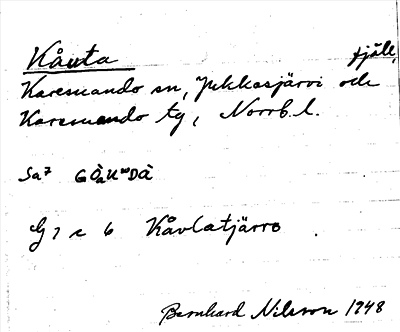 Kåuta fjäll,
Karesuando sn, Jukkasjärvi och
Karesuando tg, Norrb. l.
Sa7
G7 c 6 Kåvlatjårro
Bernhard Nilsson 1948